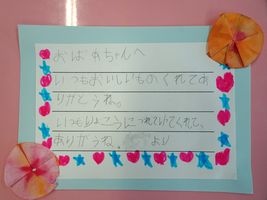 おばあちゃんへ
いつもおいしいものくれてあ
りがとうね。
いつもりょこうにつれていてくれて、
ありがうね。 より